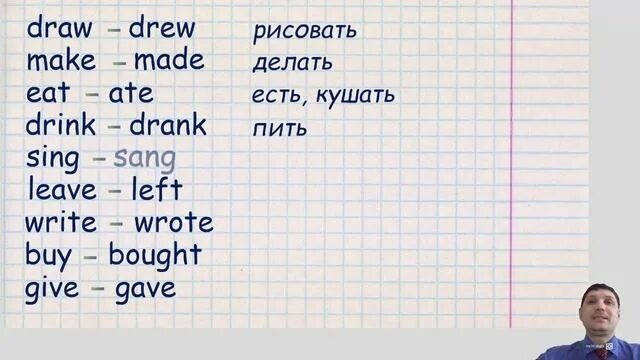 draw – drew рисовать
make – made делать
eat – ate есть, кушать
drink – drank пить
sing – sang
leave – left
write – wrote
buy – bought
give – gave